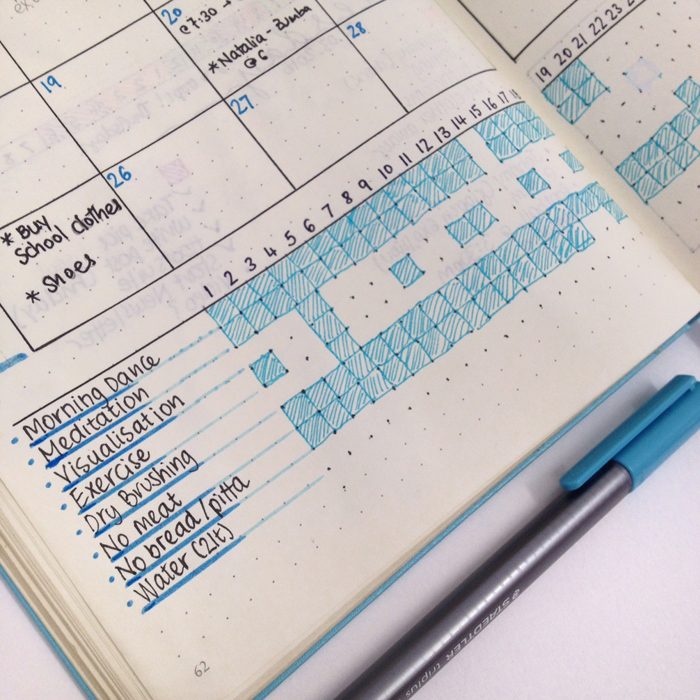 20
@7:30
*Natalia - Zumba
@6
19
28
27
26
*BUY
School clothes
*Shoes
1 2 3 4 5 6 7 8 9 10 11 12 13 14 15 16 17 18
19 20 21 22 23
Morning Dance
Meditation
Visualisation
Exercise
Dry Brushing
No meat
No bread/pitta
Water (2lt)
62
STAEDTLER triplus